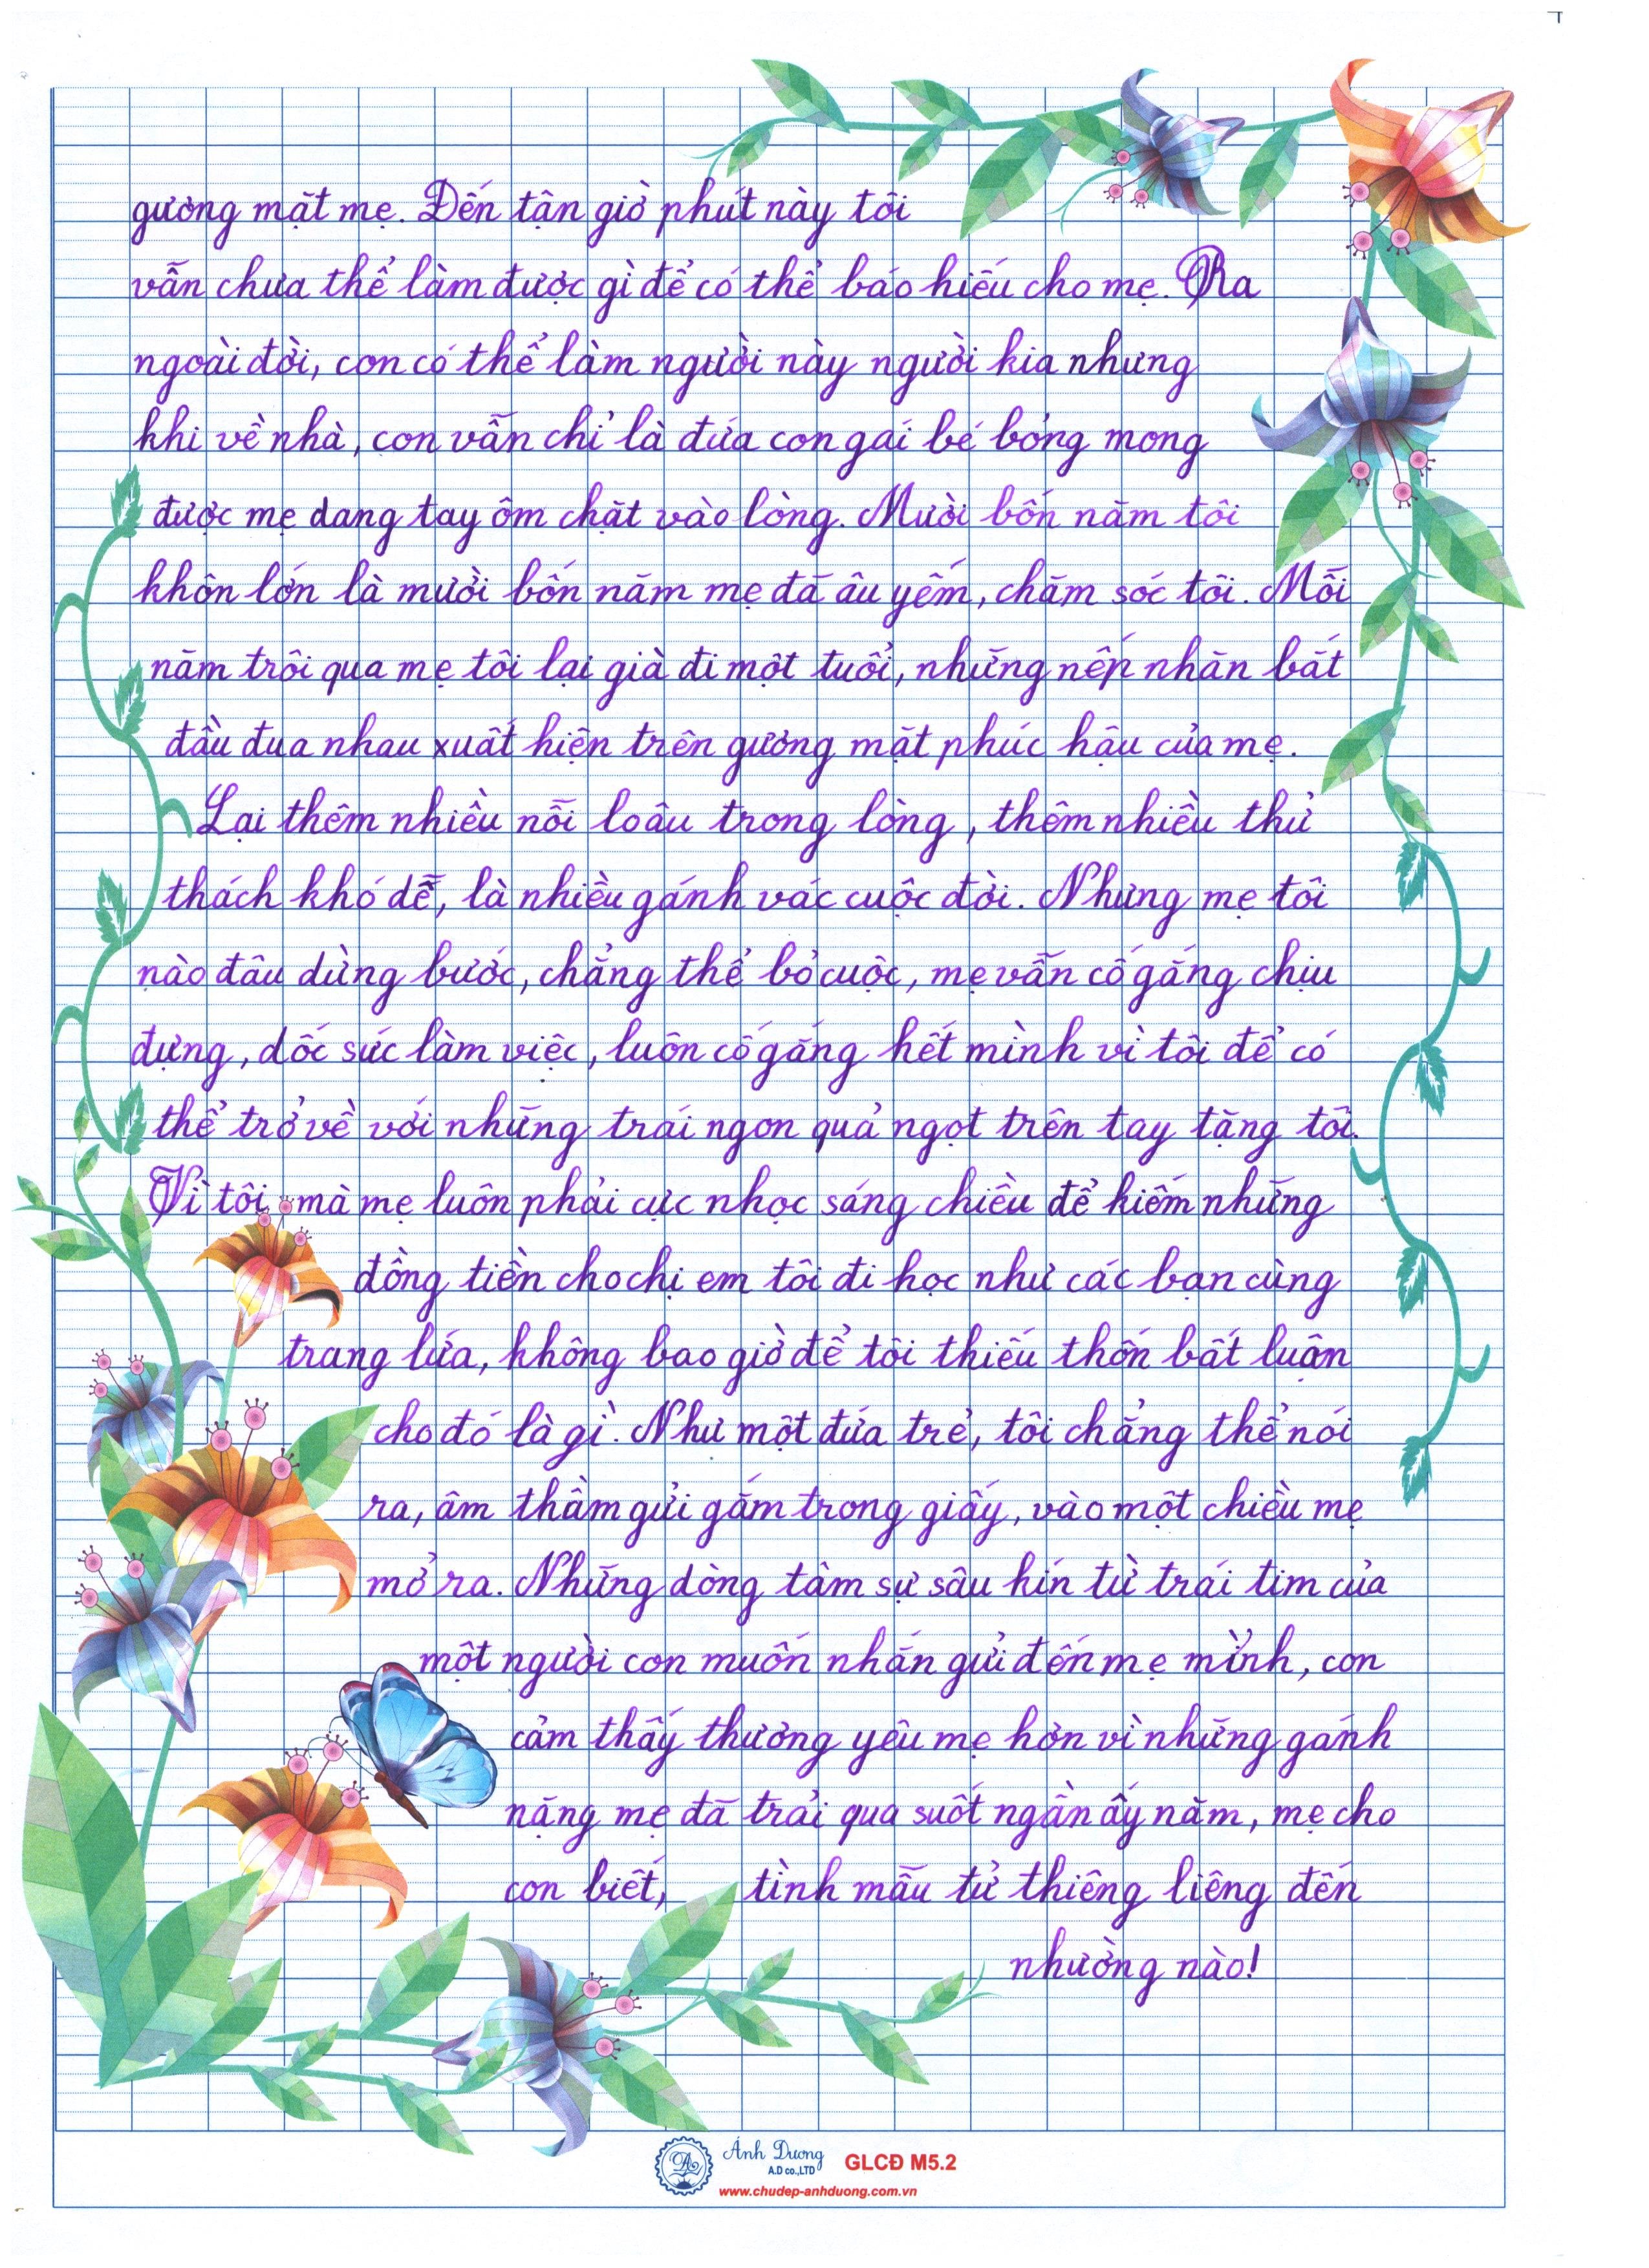 gương mặt mẹ. Đến tận giờ phút này tôi
vẫn chưa thể làm được gì để có thể báo hiếu cho mẹ. Ra
ngoài đời, con có thể làm người này người kia nhưng
khi về nhà, con vẫn chỉ là đứa con gái bé bỏng mong
được mẹ dang tay ôm chặt vào lòng. Mười bốn năm tôi
khôn lớn là mười bốn năm mẹ đã âu yếm, chăm sóc tôi. Mỗi
năm trôi qua mẹ tôi lại già đi một tuổi, những nếp nhăn bắt
đầu đua nhau xuất hiện trên gương mặt phúc hậu của mẹ.
Lại thêm nhiều nỗi lo âu trong lòng, thêm nhiều thử
thách khó dễ, là nhiều gánh vác cuộc đời. Nhưng mẹ tôi
nào đâu dừng bước, chẳng thể bỏ cuộc, mẹ vẫn cố gắng chịu
đựng, dốc sức làm việc, luôn cố gắng hết mình vì tôi để có
thể trở về với những trái ngon quả ngọt trên tay tặng tôi.
Vì tôi mà mẹ luôn phải cực nhọc sáng chiều để kiếm những
đồng tiền cho chị em tôi đi học như các bạn cùng
trang lứa, không bao giờ để tôi thiếu thốn bất luận
cho đó là gì. Như một đứa trẻ, tôi chẳng thể nói
ra, âm thầm gửi gắm trong giấy, vào một chiều mẹ
mở ra. Những dòng tâm sự sâu kín từ trái tim của
một người con muốn nhắn gửi đến mẹ mình, con
cảm thấy thương yêu mẹ hơn vì những gánh
nặng mẹ đã trải qua suốt ngần ấy năm, mẹ cho
con biết, tình mẫu tử thiêng liêng đến
nhường nào!
Ánh Dương GLCĐ M5.2
A.D co.,LTD
www.chudep-anhduong.com.vn